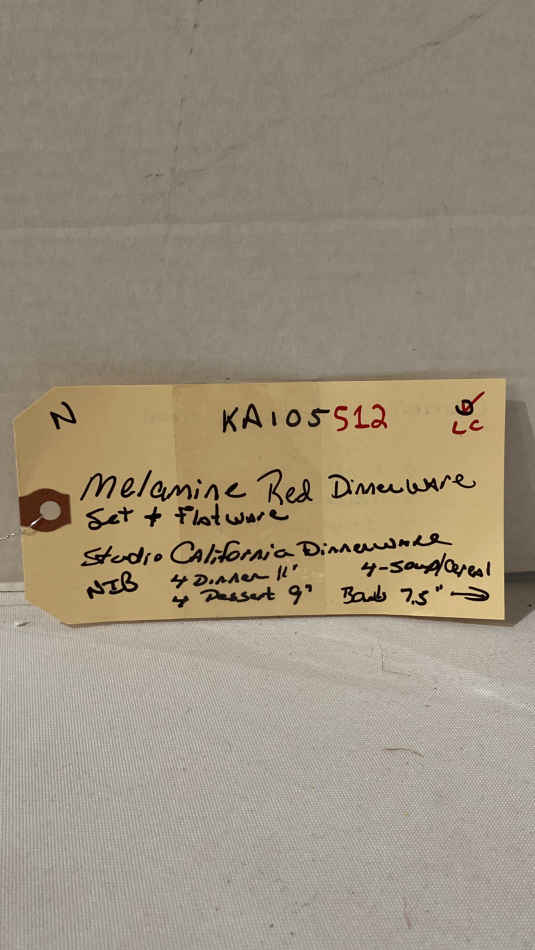 N KA105512 LC
Melamine Red Dinnerware
Set + Flatware
Studio California Dinnerware
NIB 4 Dinner 11" 4-Soup/Cereal
4 Dessert 9" Bowls 7.5" →